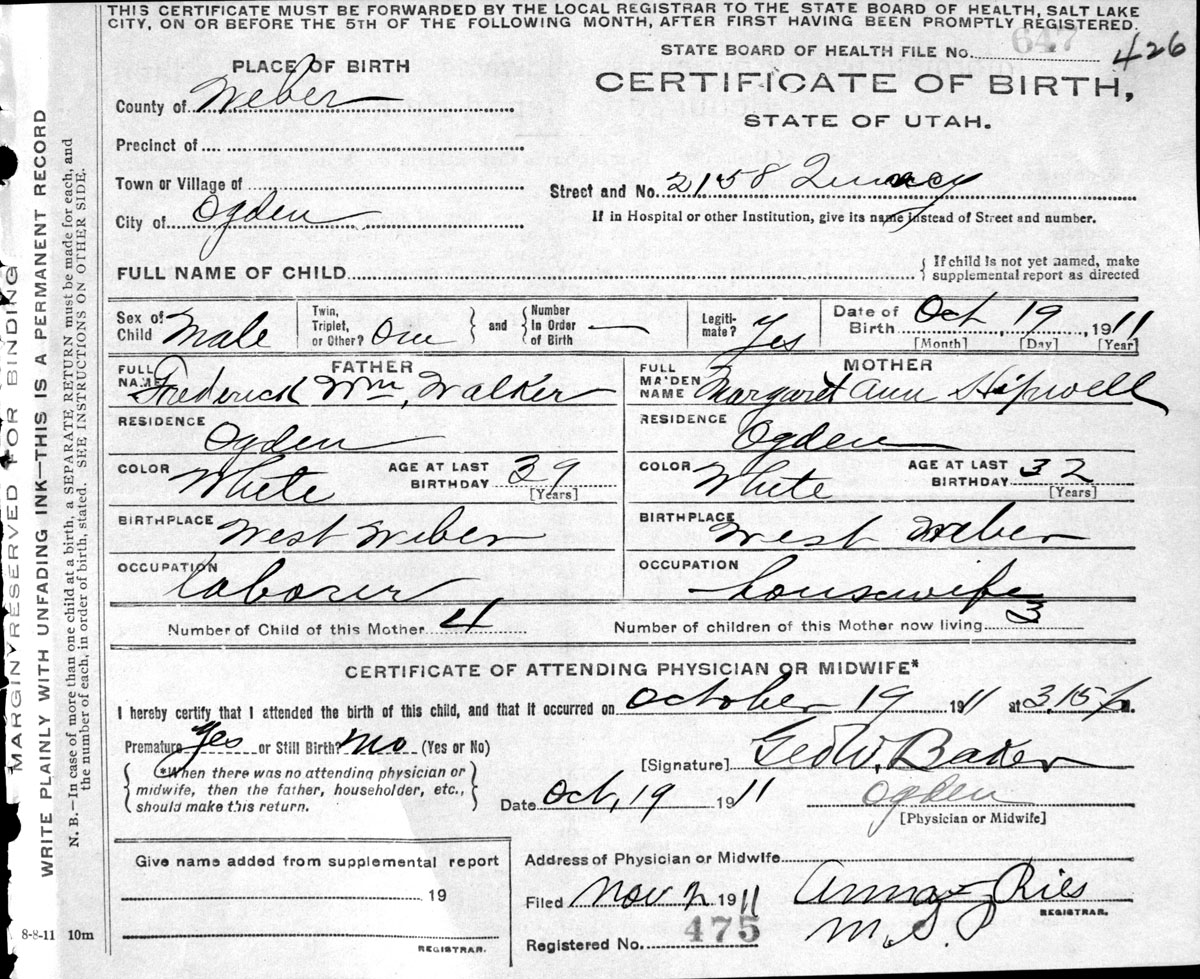 THIS CERTIFICATE MUST BE FORWARDED BY THE LOCAL REGISTRAR TO THE STATE BOARD OF HEALTH, SALT LAKE
CITY, ON OR BEFORE THE 5TH OF THE FOLLOWING MONTH, AFTER FIRST HAVING BEEN PROMPTLY REGISTERED.
STATE BOARD OF HEALTH FILE No. 647 426
PLACE OF BIRTH
CERTIFICATE OF BIRTH,
STATE OF UTAH.
County of Weber
Precinct of
Town or Village of
Street and No. 2158 Quincy
City of Ogden
If in Hospital or other Institution, give its name instead of Street and number.
FULL NAME OF CHILD
{ If child is not yet named, make
supplemental report as directed
Sex of Child Male
Twin, Triplet, or Other? One } and { Number In Order of Birth —
Legiti-mate? Yes
Date of Birth Oct, 19, 1911
[Month] [Day] [Year]
FATHER
FULL NAME Frederick Wm, Walker
RESIDENCE Ogden
COLOR White AGE AT LAST BIRTHDAY 39 [Years]
BIRTHPLACE West Weber
OCCUPATION laborer
MOTHER
FULL MAIDEN NAME Margaret Ann Hipwell
RESIDENCE Ogden
COLOR White AGE AT LAST BIRTHDAY 32 [Years]
BIRTHPLACE West Weber
OCCUPATION housewife
Number of Child of this Mother 4 Number of children of this Mother now living 3
CERTIFICATE OF ATTENDING PHYSICIAN OR MIDWIFE*
I hereby certify that I attended the birth of this child, and that it occurred on October 19 1911 at 3,15 P.m.
Premature Yes or Still Birth? No (Yes or No)
[Signature] Geo W, Baker
{ *When there was no attending physician or
midwife, then the father, householder, etc.,
should make this return. }
Date Oct, 19 1911 Ogden
[Physician or Midwife]
Give name added from supplemental report
19
REGISTRAR.
Address of Physician or Midwife
Filed Nov 2 1911 Anna Ries
REGISTRAR.
Registered No. 475
8-8-11 10m
MARGIN RESERVED FOR BINDING
WRITE PLAINLY WITH UNFADING INK—THIS IS A PERMANENT RECORD
N. B.—In case of more than one child at a birth, a SEPARATE RETURN must be made for each, and
the number of each, in order of birth, stated. SEE INSTRUCTIONS ON OTHER SIDE.